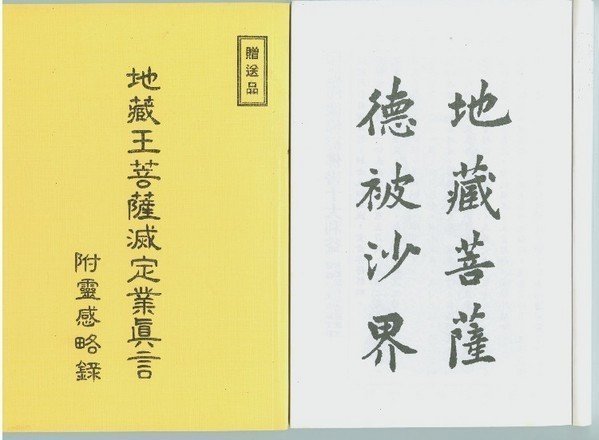 贈送品
地藏王菩薩滅定業眞言
附靈感略錄
地藏菩薩
德被沙界